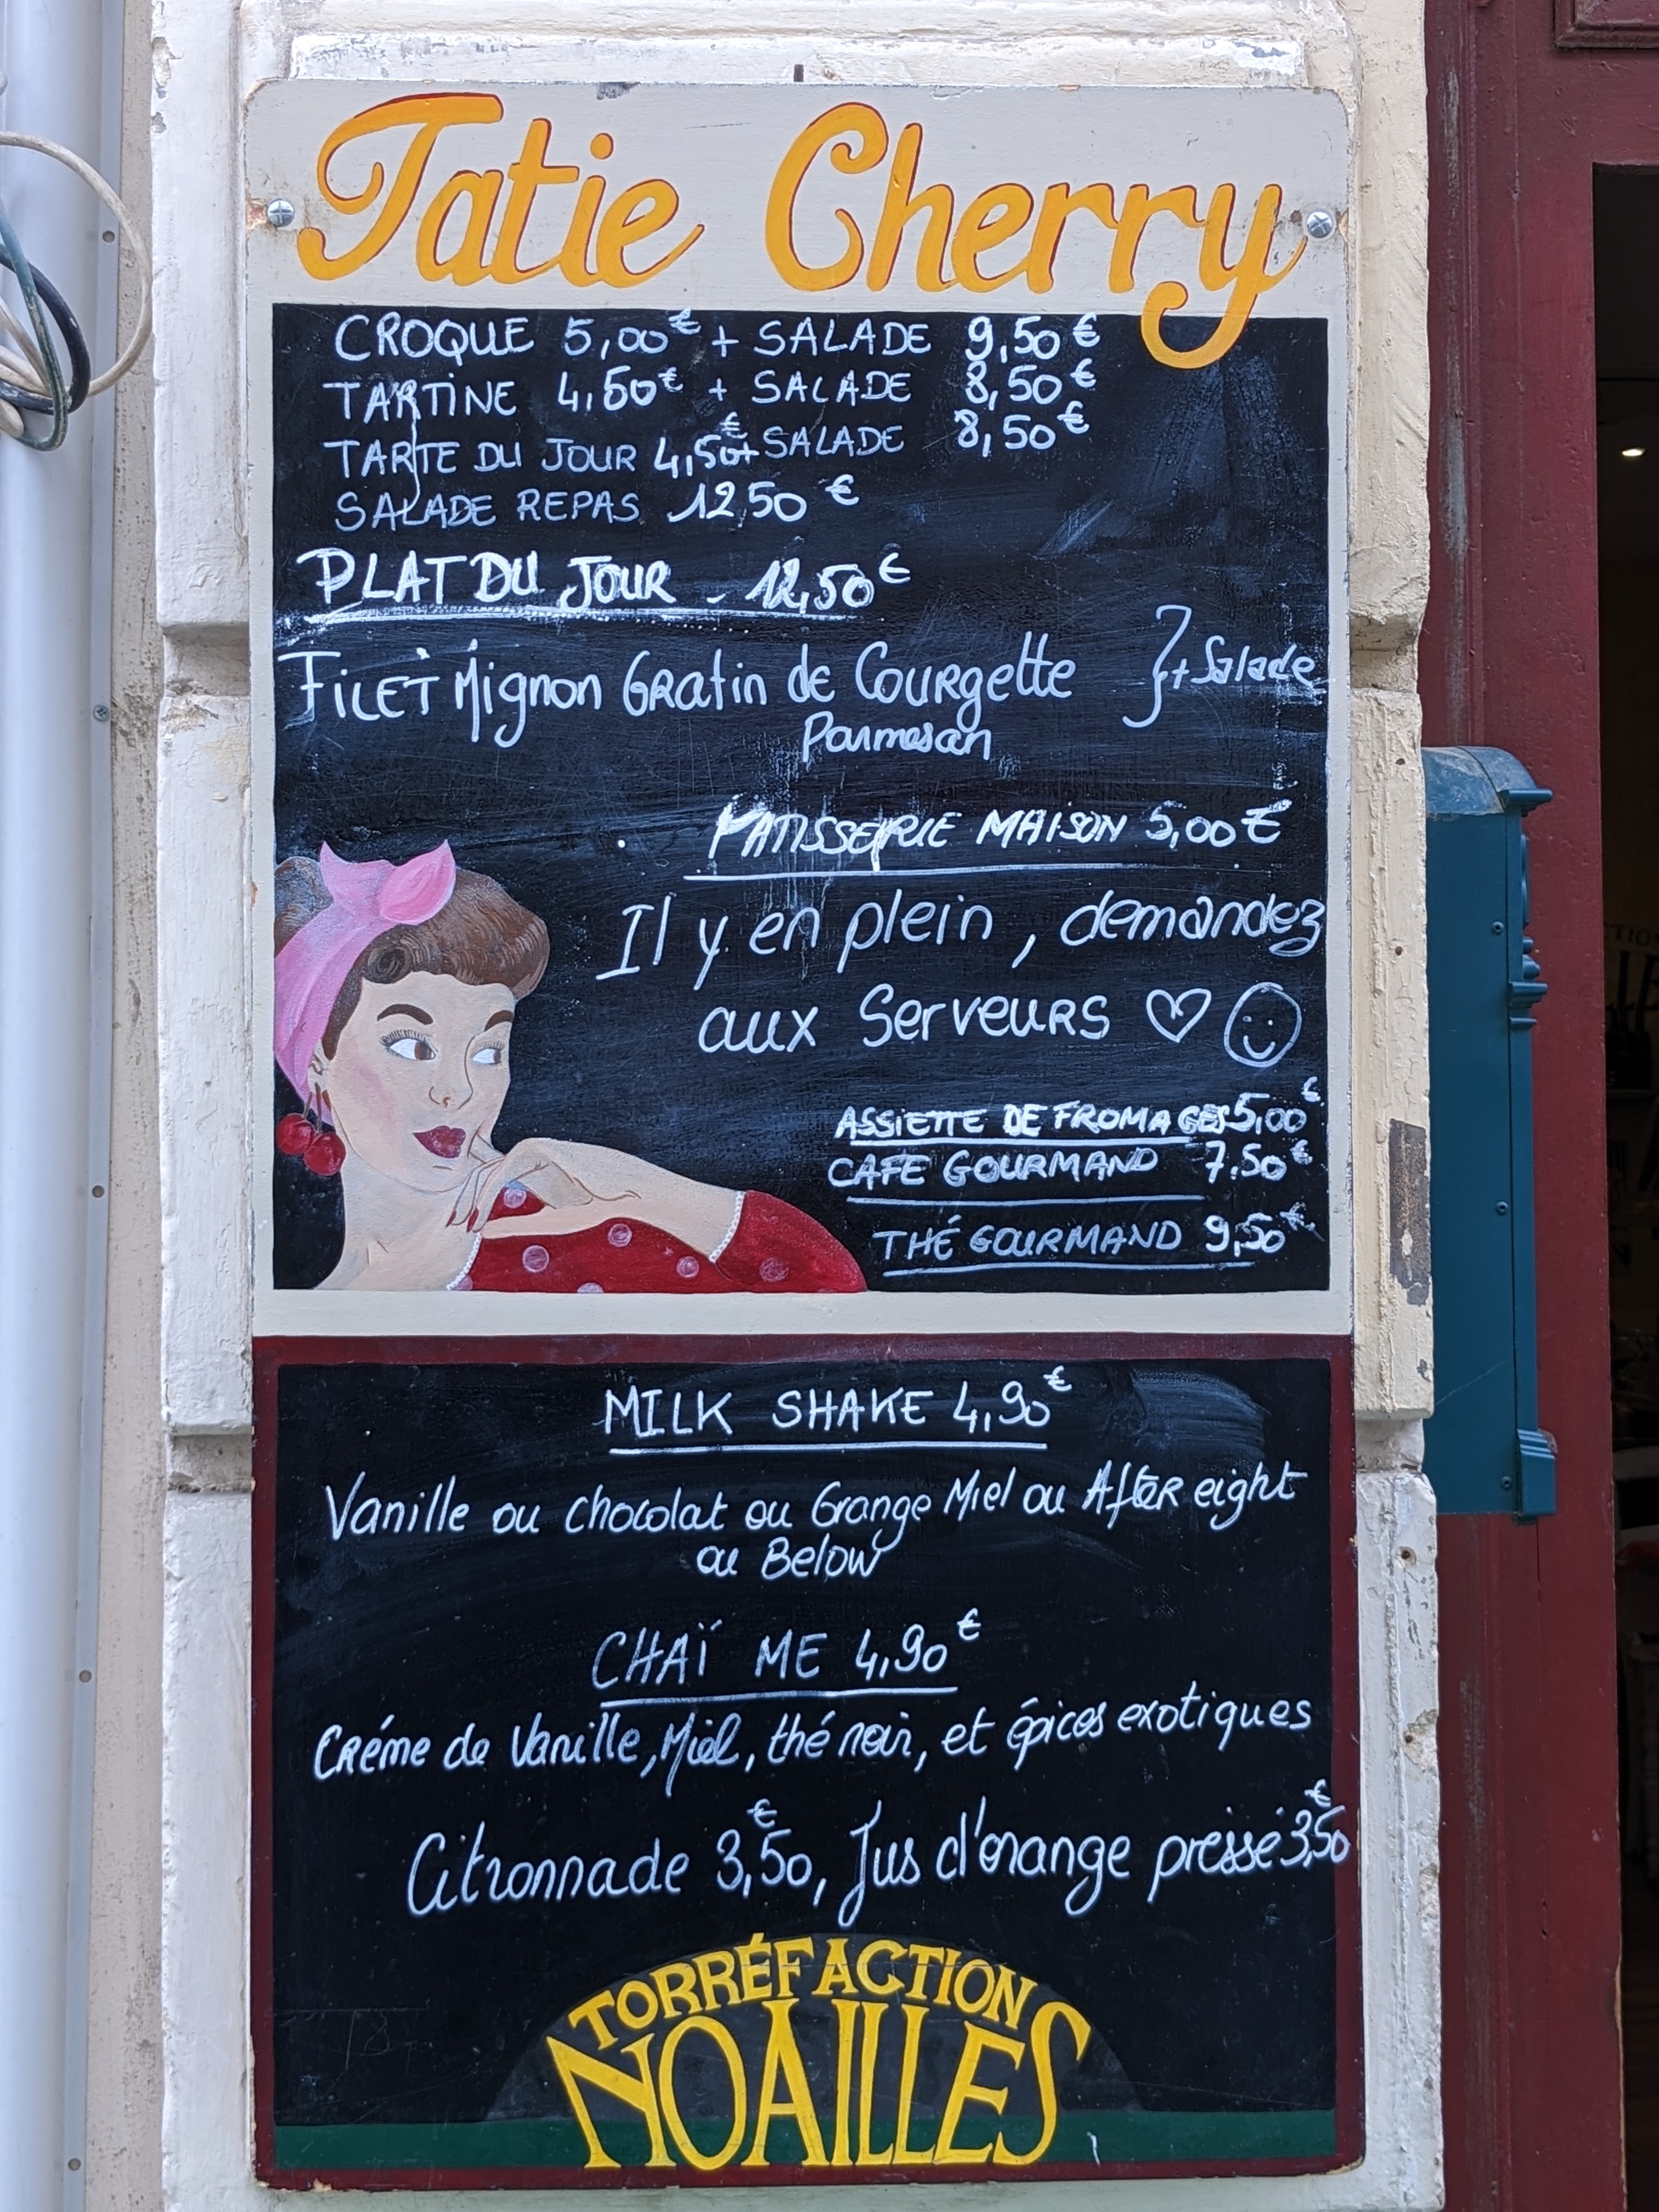 Tatie Cherry
CROQUE 5,00€ + SALADE 9,50€
TARTINE 4,50€ + SALADE 8,50€
TARTE DU JOUR 4,50€+ SALADE 8,50€
SALADE REPAS 12,50 €
PLAT DU JOUR - 12,50€
FILET Mignon GRatin de CouRgette }+ Salade
Parmesan
PATISSERIE MAISON 5,00 €
Il y en plein, demandez
aux ServeuRS ♡ ☺
ASSIETTE DE FROMAGES 5,00€
CAFE GOURMAND 7.50€
THÉ GOURMAND 9,50€
MILK SHAKE 4,90€
Vanille ou chocolat ou Orange Miel ou AfteR eight
ou Below
CHAÏ ME 4,90€
CRéme de Vanille, Miel, thé noir, et épices exotiques
Citronnade 3,50€, Jus d'orange pressé 3,50€
TORRÉFACTION
NOAILLES